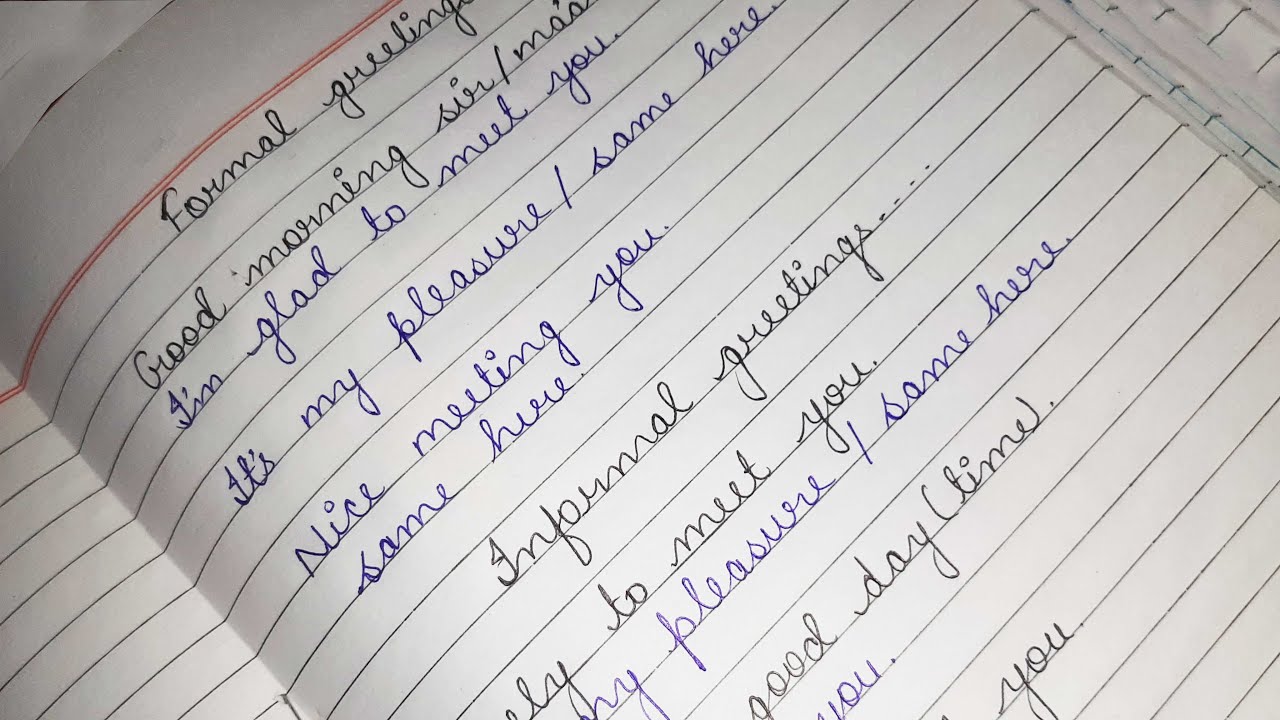 Formal greetings
Good morning sir/
I'm glad to meet you.
It's my pleasure/ same here.
Nice meeting you.
same here.
Informal greetings....
to meet you.
my pleasure / same here.
good day (time).
you.
you.